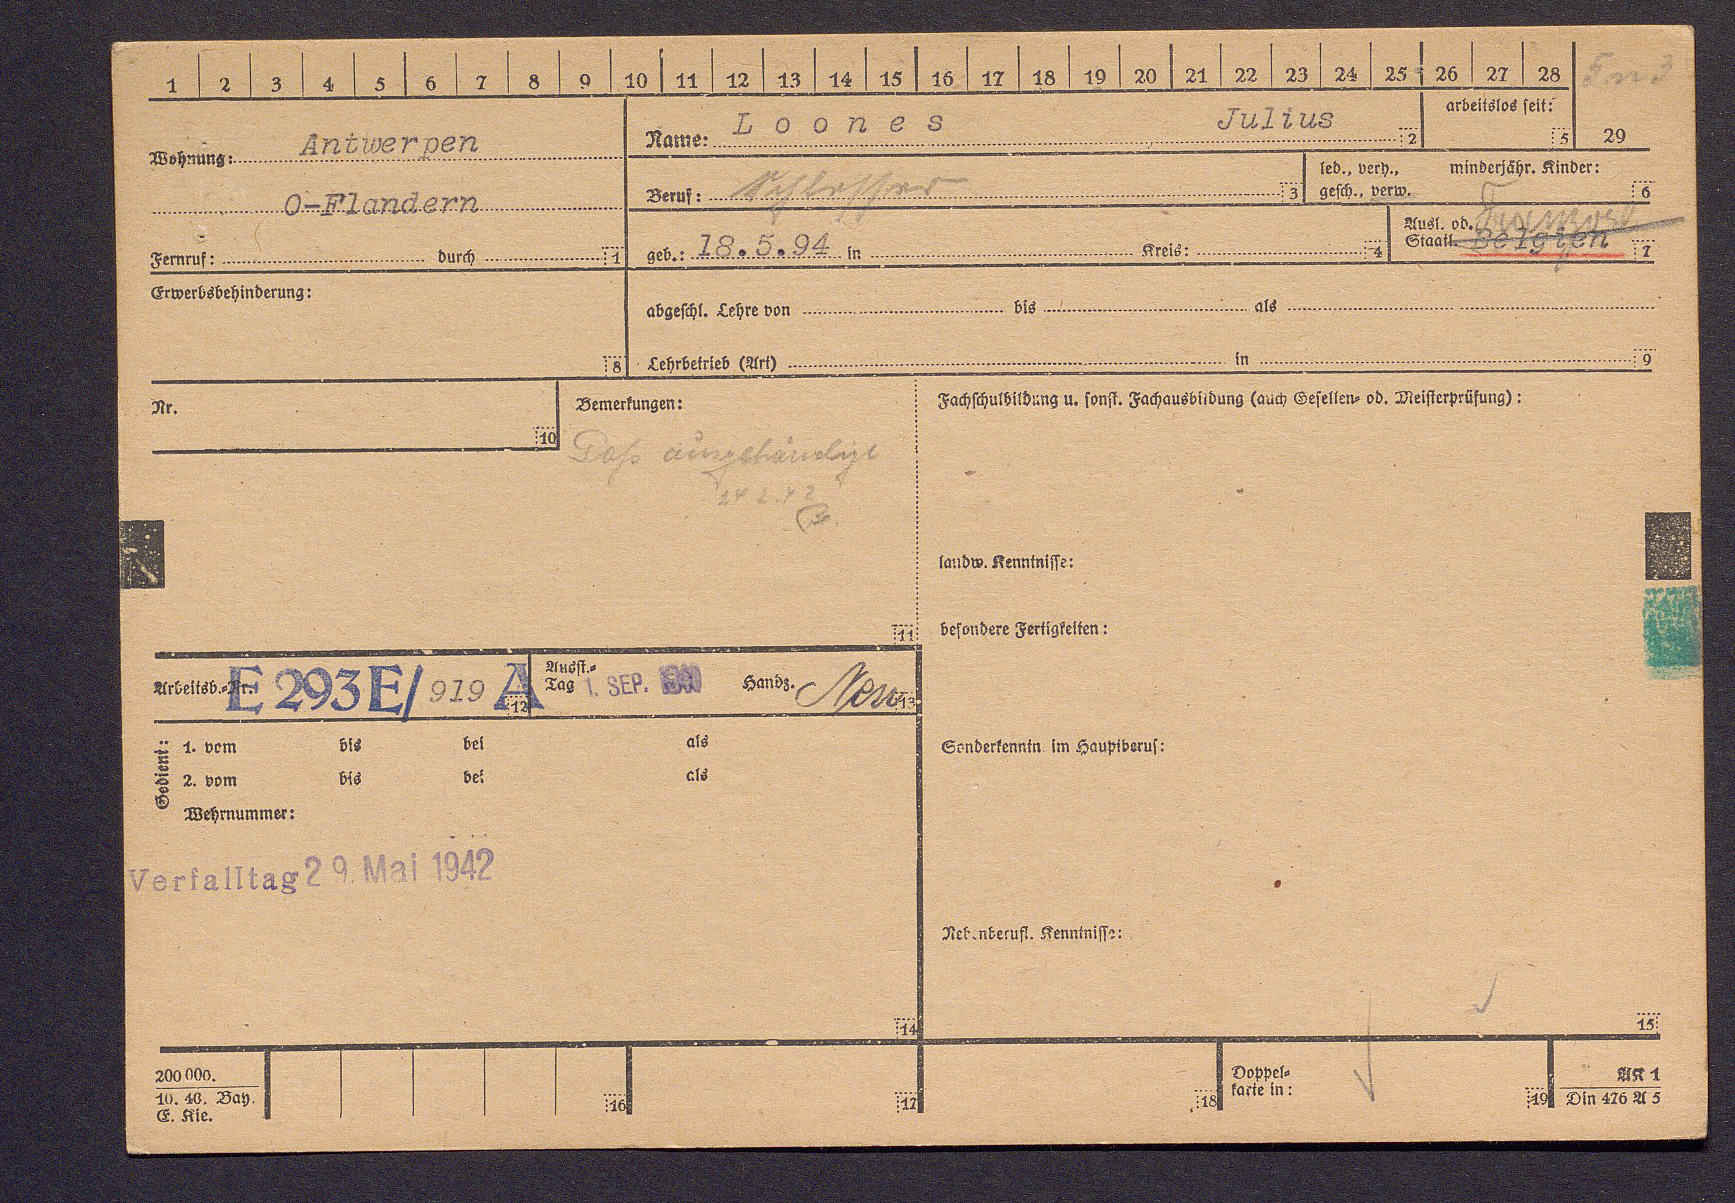 1 2 3 4 5 6 7 8 9 10 11 12 13 14 15 16 17 18 19 20 21 22 23 24 25 26 27 28
Wohnung: Antwerpen
O-Flandern
Fernruf: durch 1
Name: Loones Julius 2
arbeitslos seit: 5
29
Beruf: Schlosser 3
led., verh., gesch., verw.
minderjähr. Kinder: 6
geb.: 18.5.94 in Kreis: 4
Ausl. od. Staatl. Belgien 7
Erwerbsbehinderung: 8
abgeschl. Lehre von bis als
Lehrbetrieb (Art) in 9
Nr. 10
Bemerkungen:
Paß ausgehändigt
11
Fachschulbildung u. sonst. Fachausbildung (auch Gesellen- od. Meisterprüfung):
landw. Kenntnisse:
besondere Fertigkeiten:
Arbeitsb.-Nr. E 293 E/ 919 A 12
Ausst.-Tag 1. SEP. Handz. 13
Gedient:
1. vom bis bei als
2. vom bis bei als
Wehrnummer:
Verfalltag 29. Mai 1942
14
Sonderkenntn. im Hauptberuf:
Nebenberufl. Kenntnisse:
15
200 000.
10. 40. Bay.
E. Kie.
16
17
18
Doppel-
karte in:
19
AK 1
Din 476 A 5